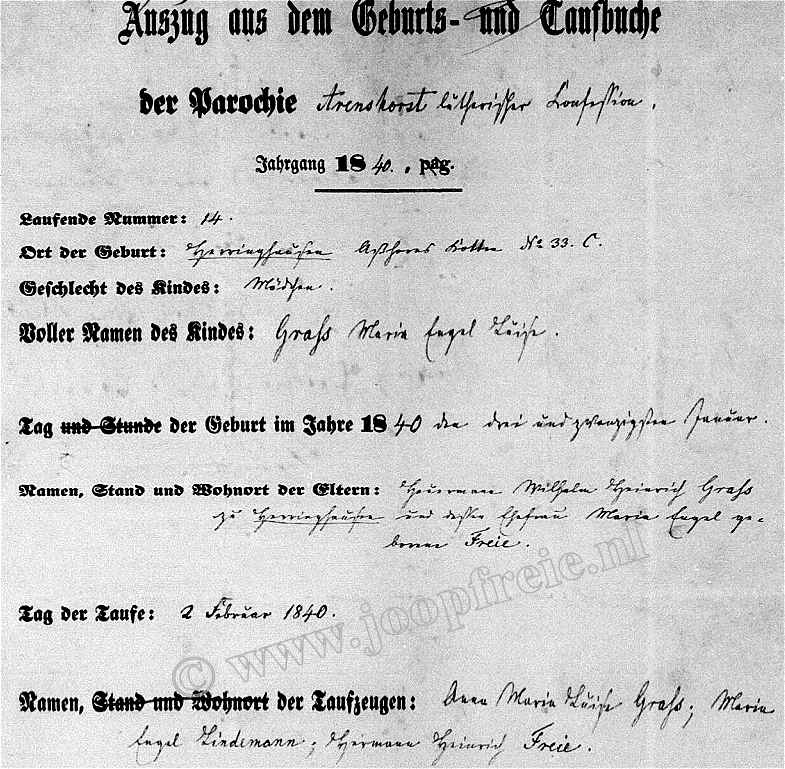 Auszug aus dem Geburts- und Taufbuche
der Parochie Arenshorst lutherischer Confession.
Jahrgang 1840. pag.
Laufende Nummer: 14.
Ort der Geburt: Herringhausen Kotten No 33. C.
Geschlecht des Kindes: Mädchen.
Voller Namen des Kindes: Grafs Maria Engel Luise.
Tag und Stunde der Geburt im Jahre 1840 den drei und zwanzigsten Januar.
Namen, Stand und Wohnort der Eltern: Heuermann Wilhelm Heinrich Grafs
zu Herringhausen und dessen Ehefrau Maria Engel ge-
borene Freie.
Tag der Taufe: 2 Februar 1840.
© www.joopfreie.nl
Namen, Stand und Wohnort der Taufzeugen: Anna Maria Luise Grafs; Maria
Engel Lindemann; Hermann Heinrich Freie.